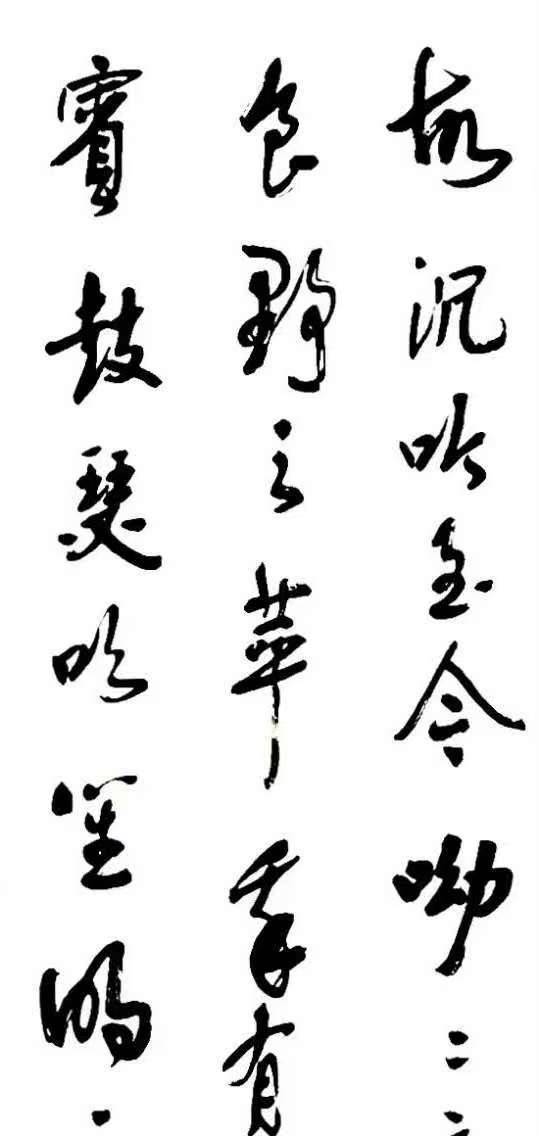 故沉吟至今呦〻
食野之苹我有
賓鼓瑟吹笙明